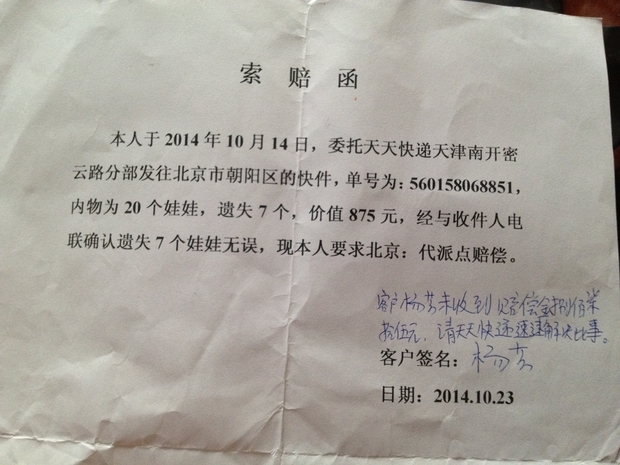 索赔函
本人于 2014 年 10 月 14 日，委托天天快递天津南开密
云路分部发往北京市朝阳区的快件，单号为: 560158068851，
内物为 20 个娃娃，遗失 7 个，价值 875 元，经与收件人电
联确认遗失 7 个娃娃无误，现本人要求北京：代派点赔偿。
客户杨芳未收到赔偿金捌佰柒
拾伍元，请天天快递速速解决此事。
客户签名：杨芳
日期：2014.10.23